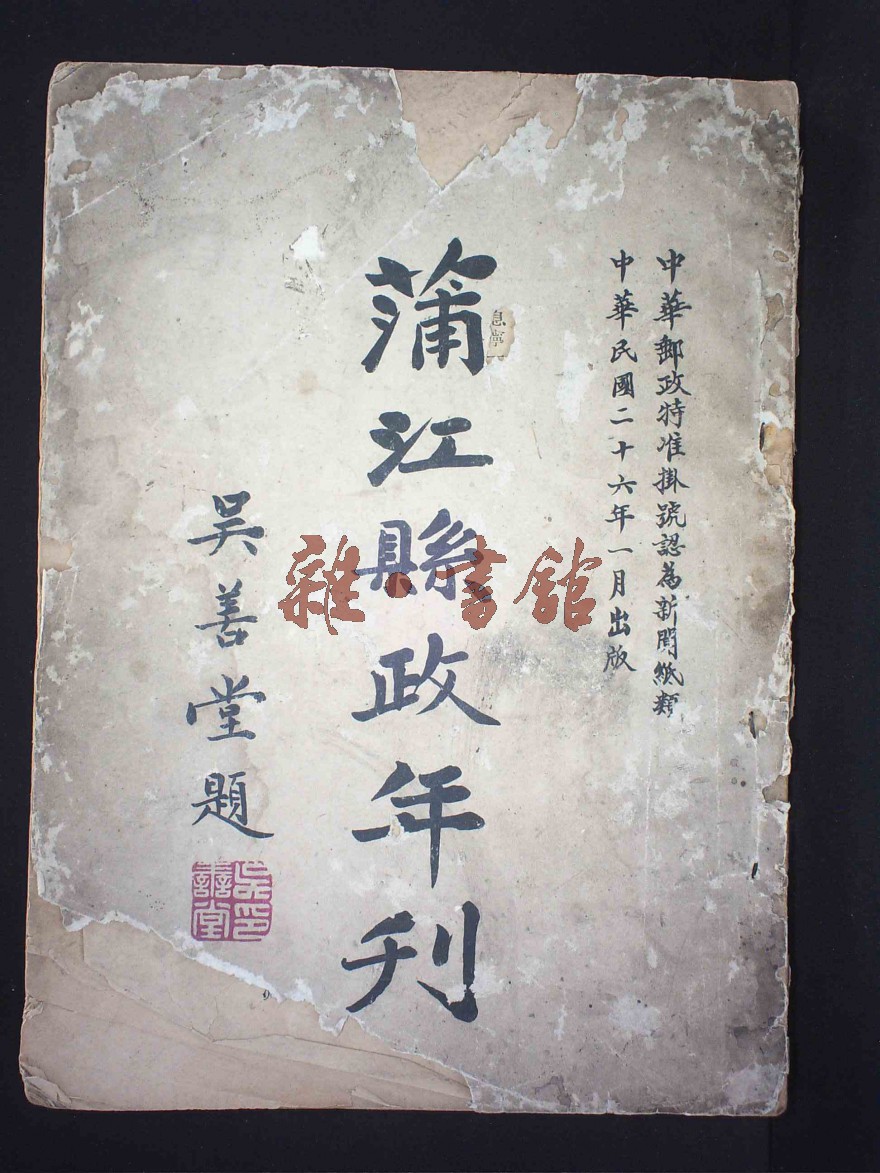 中華郵政特准掛號認為新聞紙類
中華民國二十六年一月出版
蒲江縣政年刊
吳善堂題
吳善堂印
雜·書館
息寧